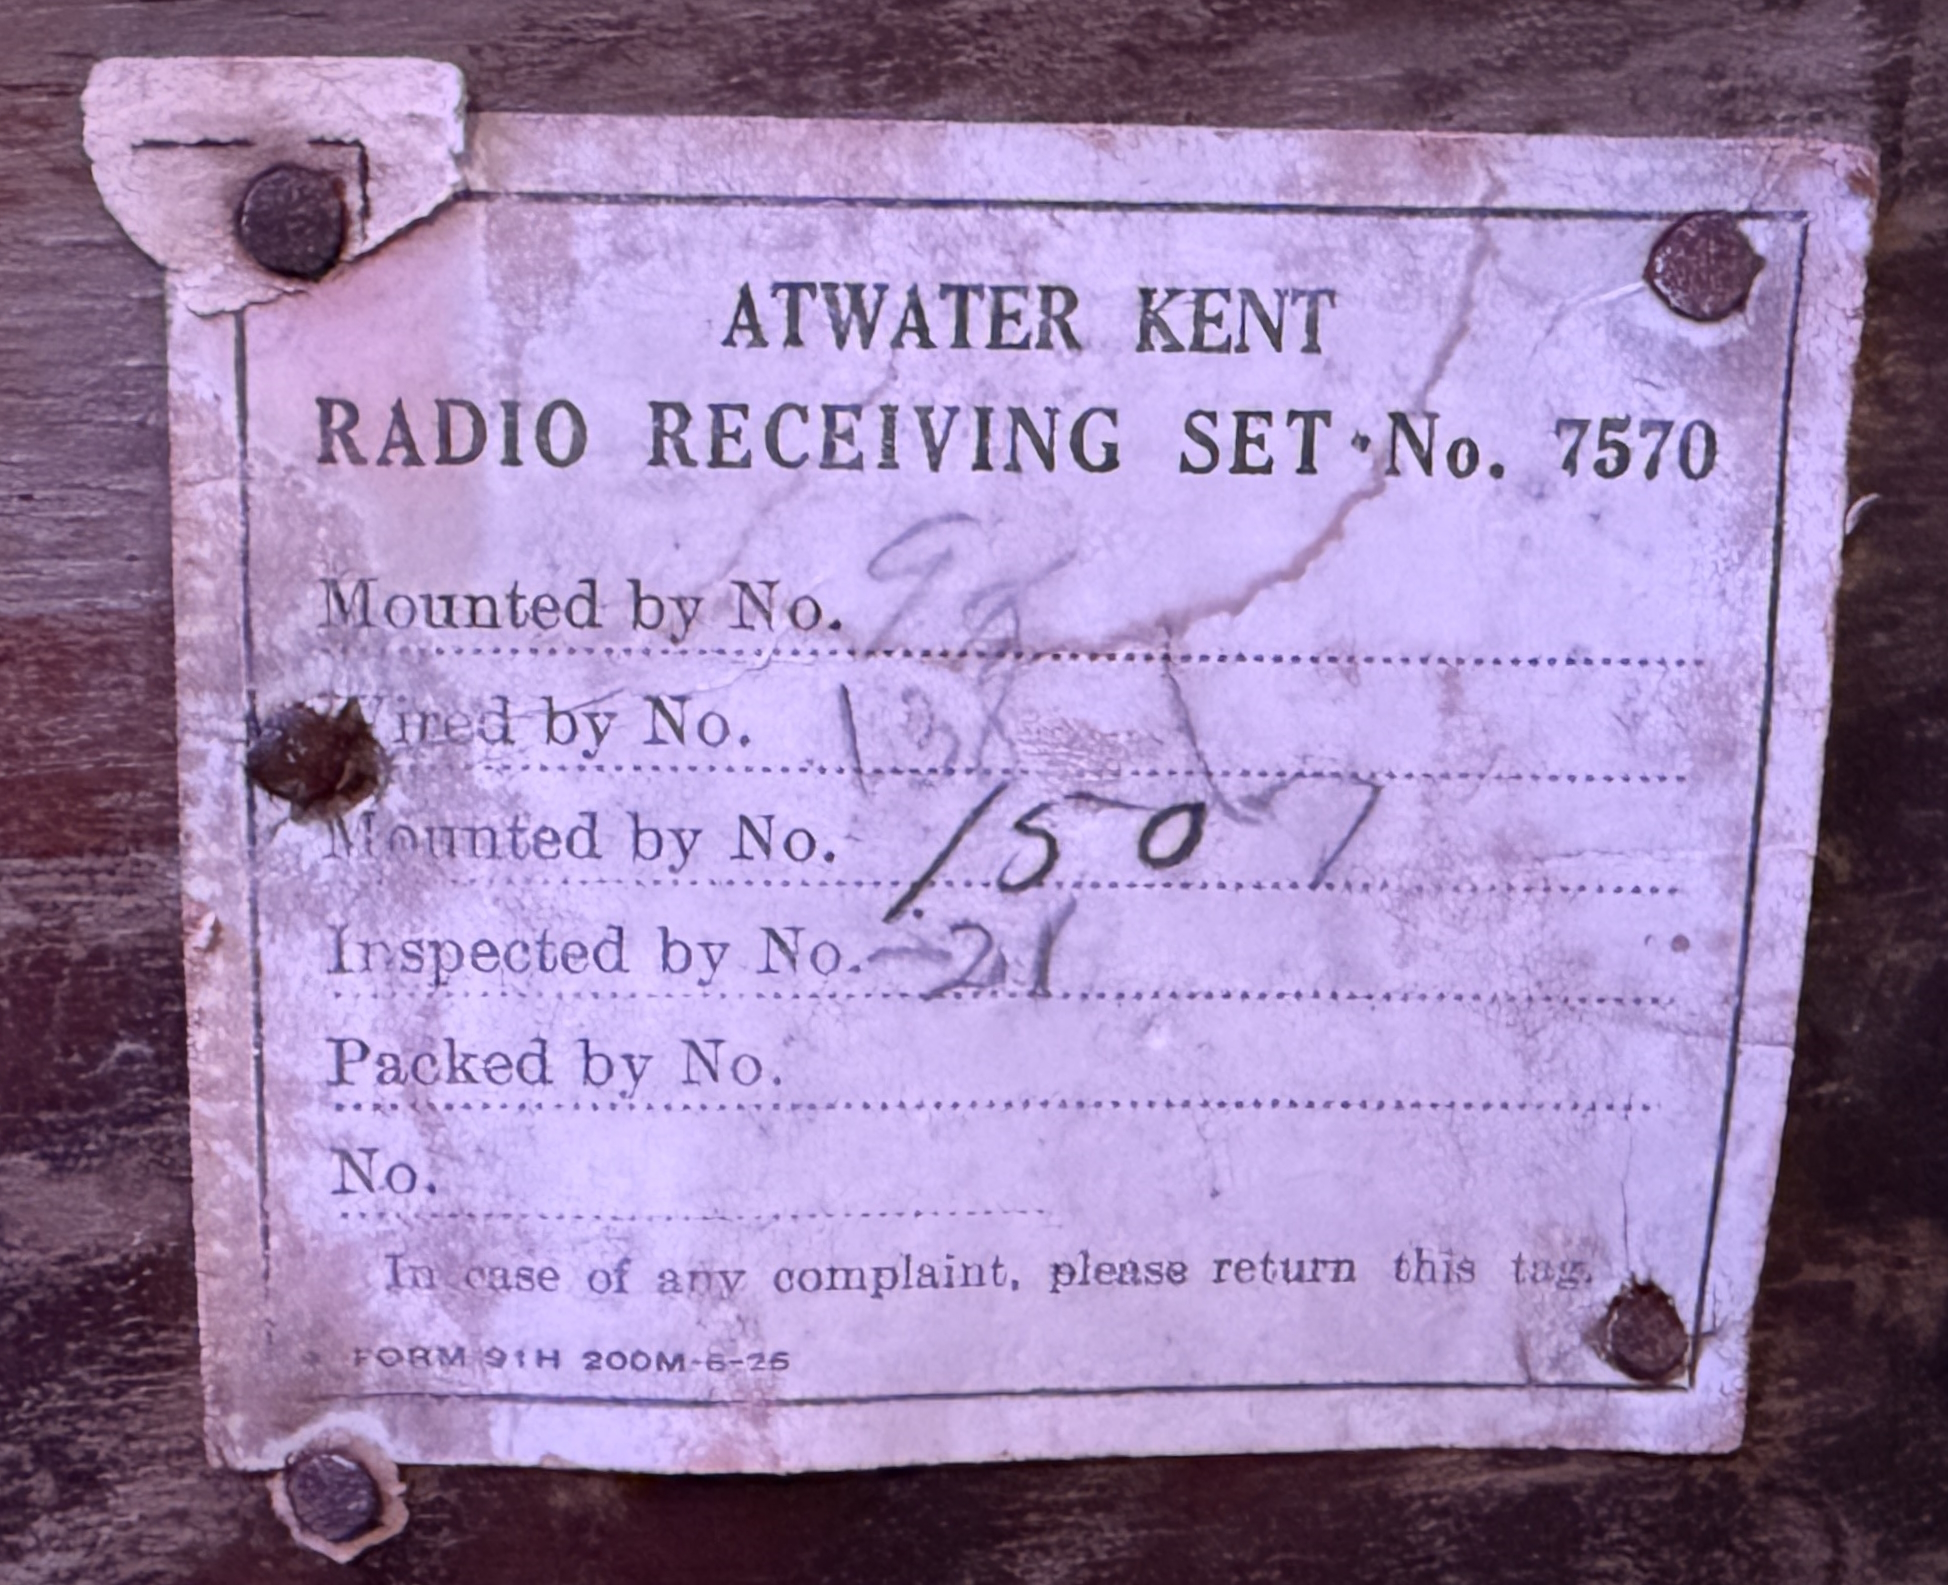 ATWATER KENT
RADIO RECEIVING SET No. 7570
Mounted by No. 98
Wired by No. 138
Mounted by No. 150 7
Inspected by No. 21
Packed by No.
No.
In case of any complaint, please return this tag.
FORM 91H 200M-6-25